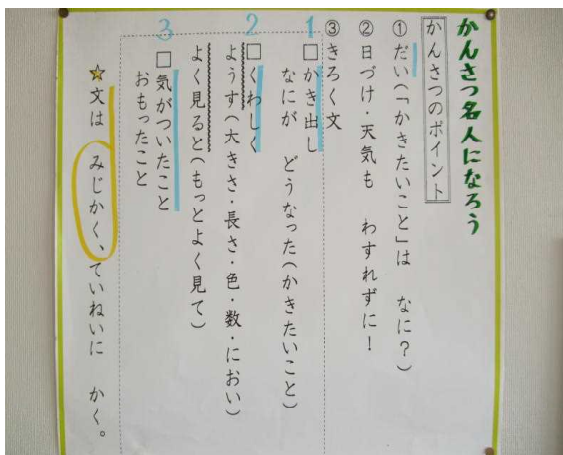 かんさつ名人になろう
かんさつのポイント
①だい(「かきたいこと」は なに?)
②日づけ・天気も わすれずに!
③きろく文
1 □かき出し
なにが どうなった(かきたいこと)
2 □くわしく
ようす(大きさ・長さ・色・数・におい)
よく見ると(もっとよく見て)
3 □気がついたこと
おもったこと
☆文は みじかく、ていねいに かく。